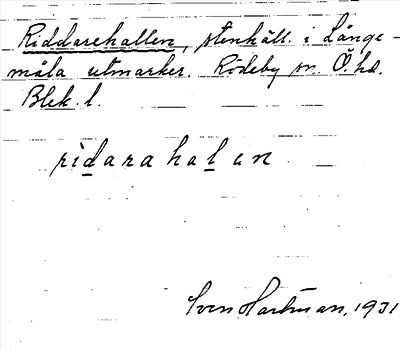 Riddarehallen, stenhäll i Långe-
måla utmarker. Rödeby sn. Ö. hd.
Blek. l.
ridarahalen
Sven Hartman, 1931